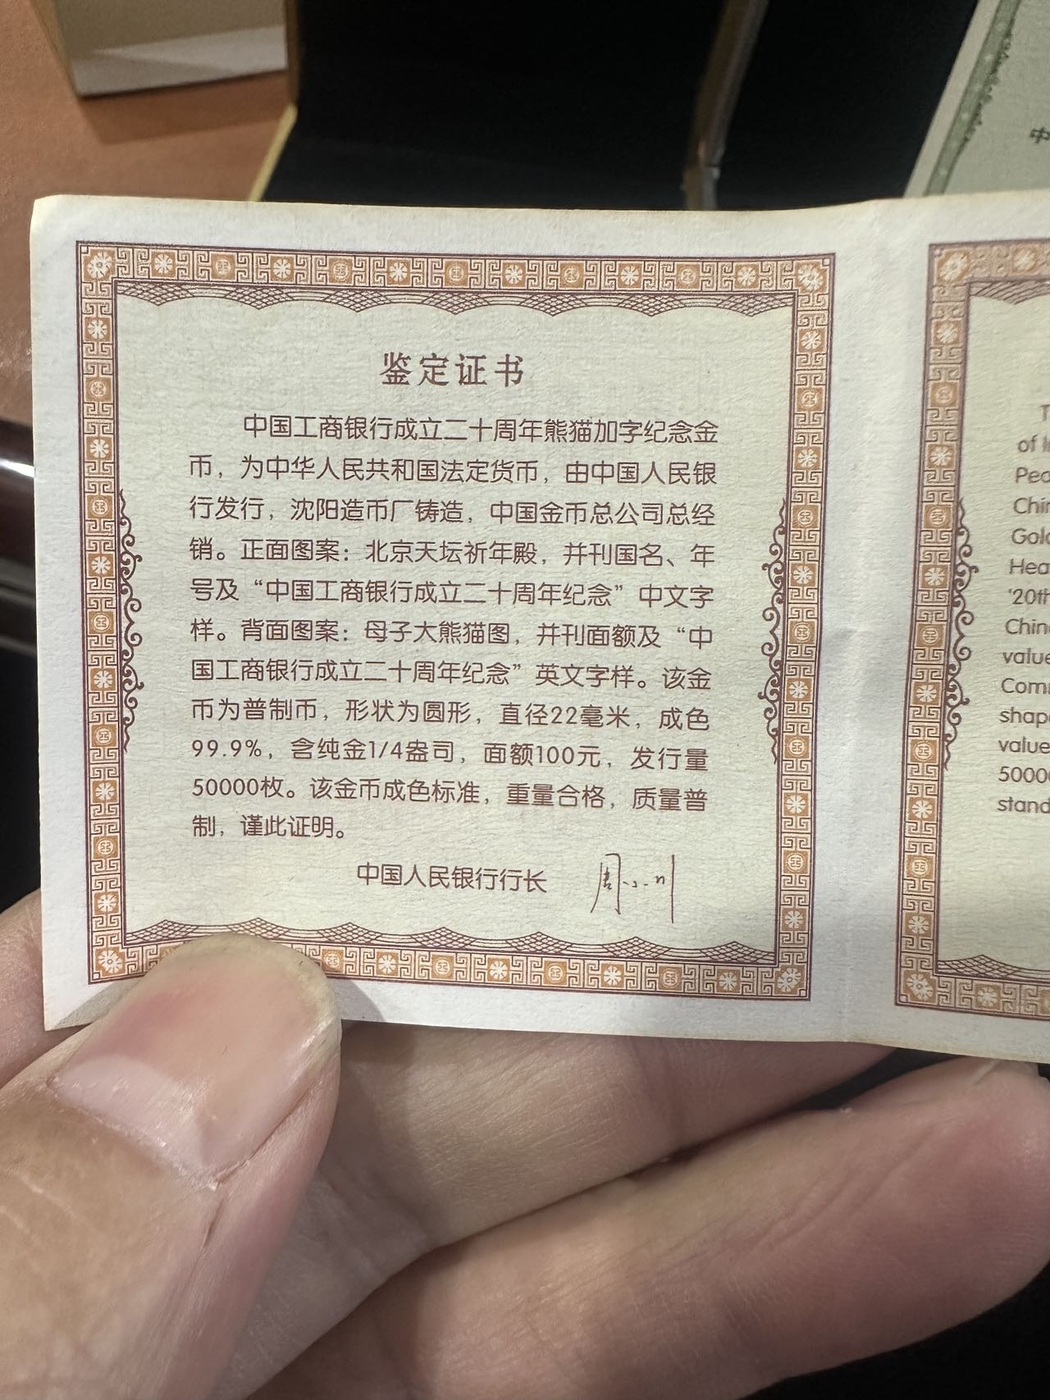 鉴定证书
中国工商银行成立二十周年熊猫加字纪念金
币，为中华人民共和国法定货币，由中国人民银
行发行，沈阳造币厂铸造，中国金币总公司总经
销。正面图案：北京天坛祈年殿，并刊国名、年
号及“中国工商银行成立二十周年纪念”中文字
样。背面图案：母子大熊猫图，并刊面额及“中
国工商银行成立二十周年纪念”英文字样。该金
币为普制币，形状为圆形，直径22毫米，成色
99.9%，含纯金1/4盎司，面额100元，发行量
50000枚。该金币成色标准，重量合格，质量普
制，谨此证明。
中国人民银行行长 周小川
of
Gold
'20th
value
shap
value
stand
中